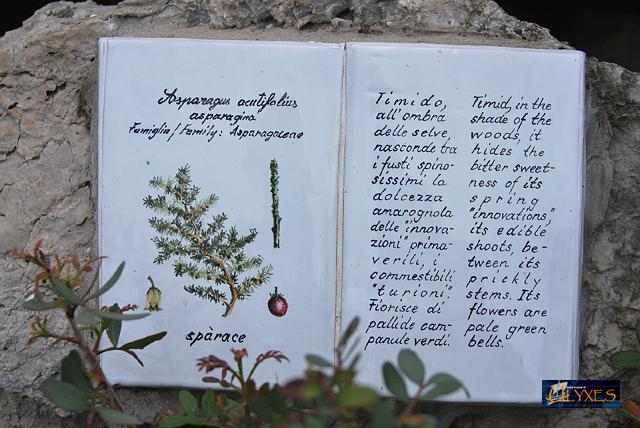 Asparagus acutifolius
asparagina
Famiglia/Family: Asparagaceae
spàrace
Timido,
all'ombra
delle selve,
nasconde tra
i fusti spino-
sissimi la
dolcezza
amarognola
delle "innova-
zioni" prima-
verili, i
commestibili
"turioni".
Fiorisce di
pallide cam-
panule verdi.
Timid, in the
shade of the
woods, it
hides the
bitter sweet-
ness of its
spring
"innovations,"
its edible
shoots, be-
tween its
prickly
stems. Its
flowers are
pale green
bells.
ULYXES